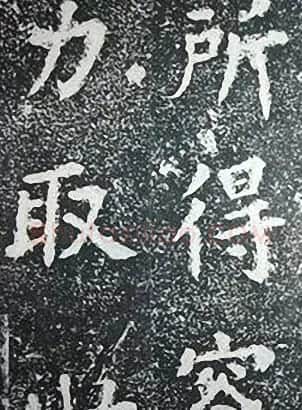 所得容
力取